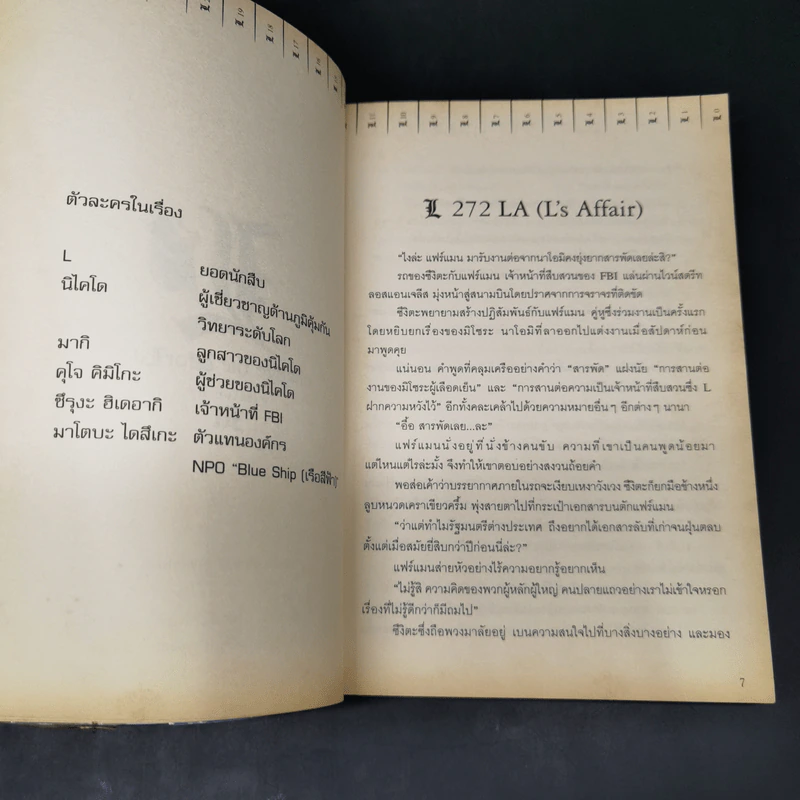 ตัวละครในเรื่อง
L ยอดนักสืบ
นิไคโด ผู้เชี่ยวชาญด้านภูมิคุ้มกัน
วิทยาระดับโลก
มากิ ลูกสาวของนิไคโด
คุโจ คิมิโกะ ผู้ช่วยของนิไคโด
ซึรุงะ ฮิเดอากิ เจ้าหน้าที่ FBI
มาโตบะ ไดสึเกะ ตัวแทนองค์กร
NPO “Blue Ship (เรือสีฟ้า)”
L 10 L 9 L 8 L 7 L 6 L 5 L 4 L 3 L 2 L 1 L 0
L 272 LA (L's Affair)
“ไงล่ะ แฟร์แมน มารับงานต่อจากนาโอมิคงยุ่งยากสารพัดเลยล่ะสิ?”
รถของซึงิตะกับแฟร์แมน เจ้าหน้าที่สืบสวนของ FBI แล่นผ่านไวน์สตรีท
ลอสแอนเจลิส มุ่งหน้าสู่สนามบินโดยปราศจากการจราจรที่ติดขัด
ซึงิตะพยายามสร้างปฏิสัมพันธ์กับแฟร์แมน คู่หูซึ่งร่วมงานเป็นครั้งแรก
โดยหยิบยกเรื่องของมิโซระ นาโอมิที่ลาออกไปแต่งงานเมื่อสัปดาห์ก่อน
มาพูดคุย
แน่นอน คำพูดที่คลุมเครืออย่างคำว่า “สารพัด” แฝงนัย “การสานต่อ
งานของมิโซระผู้เลือดเย็น” และ “การสานต่อความเป็นเจ้าหน้าที่สืบสวนซึ่ง L
ฝากความหวังไว้” อีกทั้งคละเคล้าไปด้วยความหมายอื่นๆ อีกต่างๆ นานา
“อื้อ สารพัดเลย...ละ”
แฟร์แมนนั่งอยู่ที่นั่งข้างคนขับ ความที่เขาเป็นคนพูดน้อยมา
แต่ไหนแต่ไรล่ะมั้ง จึงทำให้เขาตอบอย่างสงวนถ้อยคำ
พอส่อเค้าว่าบรรยากาศภายในรถจะเงียบเหงาวังเวง ซึงิตะก็ยกมือข้างหนึ่ง
ลูบหนวดเคราเขียวครึ้ม พุ่งสายตาไปที่กระเป๋าเอกสารบนตักแฟร์แมน
“ว่าแต่ทำไมรัฐมนตรีต่างประเทศ ถึงอยากได้เอกสารลับที่เก่าจนฝุ่นตลบ
ตั้งแต่เมื่อสมัยยี่สิบกว่าปีก่อนนี่ล่ะ?”
แฟร์แมนส่ายหัวอย่างไร้ความอยากรู้อยากเห็น
“ไม่รู้สิ ความคิดของพวกผู้หลักผู้ใหญ่ คนปลายแถวอย่างเราไม่เข้าใจหรอก
เรื่องที่ไม่รู้ดีกว่าก็มีถมไป”
ซึงิตะซึ่งถือพวงมาลัยอยู่ เบนความสนใจไปที่บางสิ่งบางอย่าง และมอง
7